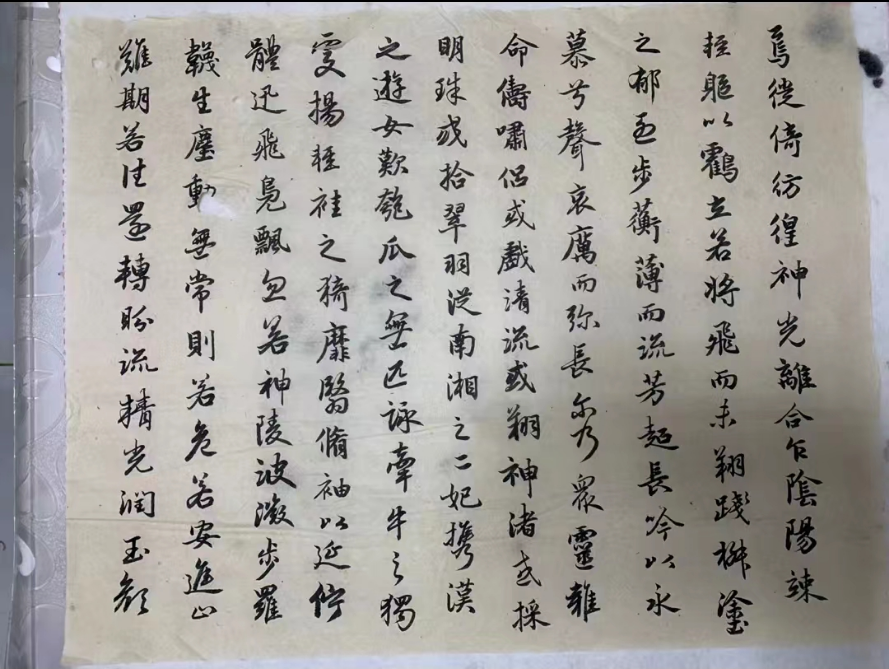 焉徙倚彷徨神光離合乍陰陽竦
輕軀以鶴立若將飛而未翔踐椒塗
之郁烈步蘅薄而流芳超長吟以永
慕兮聲哀厲而彌長尔乃眾靈雜
命儔嘯侶或戲清流或翔神渚或採
明珠或拾翠羽從南湘之二妃攜漢
之遊女歎匏瓜之無匹詠牽牛之獨
處揚輕袿之猗靡翳脩袖以延佇
體迅飛鳧飄忽若神陵波微步羅
韈生塵動無常則若危若安進止
難期若往若還轉眄流精光潤玉顏